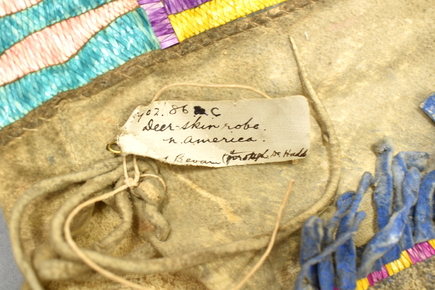 1902.86 C
Deer-skin robe.
N. America.
Bevan (through Dr Hadd